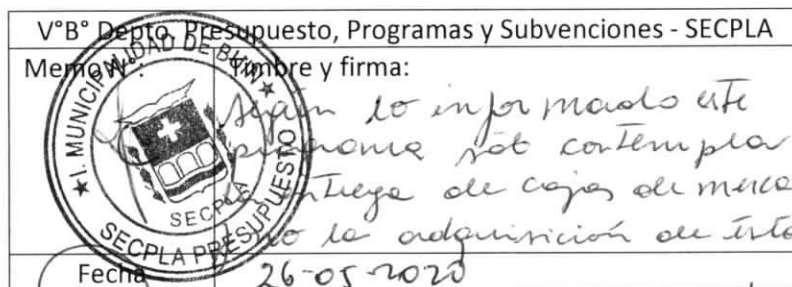 V°B° Depto. Presupuesto, Programas y Subvenciones - SECPLA
Memo N°:
Timbre y firma:
I. MUNICIPALIDAD DE BUIN
SECPLA
SECPLA PRESUPUESTO
Según lo informado este
programa sólo contempla
entrega de cajas de merca
no la adquisición de ésta
Fecha
26-05-2020